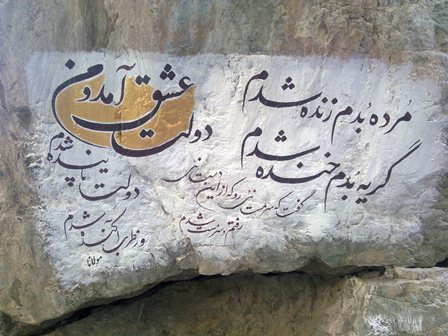 مُرده بُدم زنده شدم
گریه بُدم خنده شدم
دولت عشق آمد و من
دولت پاینده شدم
گفت که سرمست نئی رو که از این دست نئی
رفتم و سرمست شدم
وز طرب آکنده شدم
مولانا